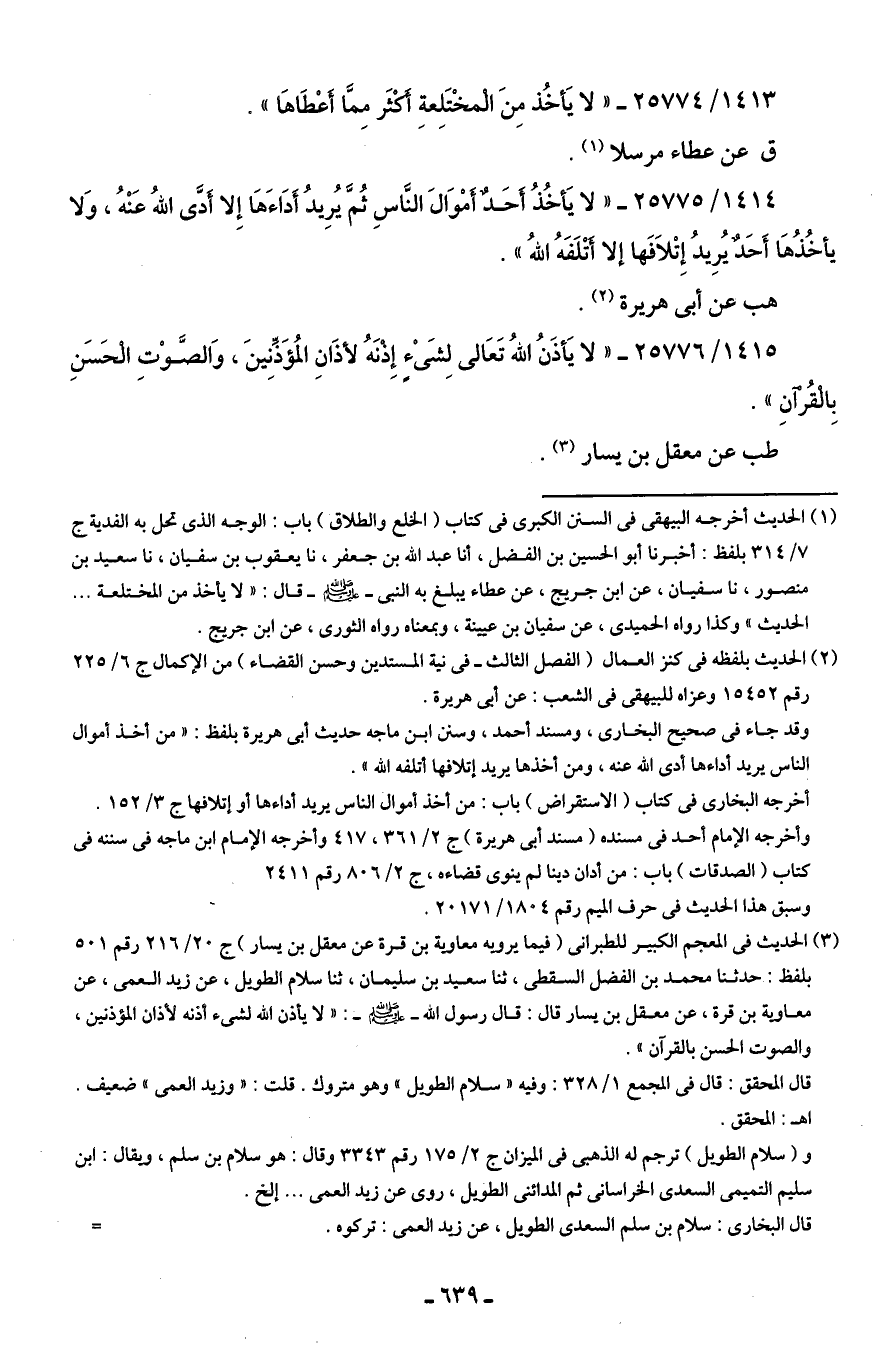 ١٤١٣/ ٢٥٧٧٤ ـ « لا يَأخُذ مِنَ الْمخْتَلِعةِ أَكْثَر مِمَّا أَعْطَاهَا » .
ق عن عطاء مرسلا (١) .
١٤١٤/ ٢٥٧٧٥ ـ « لا يَأخُذُ أَحَدٌ أَمْوَالَ النَّاسِ ثُمَّ يُرِيدُ أَدَاءَهَا إِلا أَدَّى اللهُ عَنْهُ ، وَلا
يأخُذُهَا أَحَدٌ يُرِيدُ إِتْلاَفَها إِلا أَتْلَفَهُ اللهُ » .
هب عن أبى هريرة (٢) .
١٤١٥/ ٢٥٧٧٦ ـ « لا يَأذَنُ اللهُ تَعَالى لِشَىْءٍ إِذْنَهُ لأذَانِ الْمُؤَذِّنِينَ ، وَالصَّوْتِ الْحَسَنِ
بِالْقُرْآنِ » .
طب عن معقل بن يسار (٣) .
(١) الحديث أخرجه البيهقى فى السنن الكبرى فى كتاب ( الخلع والطلاق ) باب : الوجه الذى تحل به الفدية ج
٧/ ٣١٤ بلفظ : أخبرنا أبو الحسين بن الفضل ، أنا عبد الله بن جعفر ، نا يعقوب بن سفيان ، نا سعيد بن
منصور ، نا سفيان ، عن ابن جريج ، عن عطاء يبلغ به النبى ـ ﷺ ـ قال : « لا يأخذ من المختلعة ...
الحديث » وكذا رواه الحميدى ، عن سفيان بن عيينة ، وبمعناه رواه الثورى ، عن ابن جريج .
(٢) الحديث بلفظه فى كنز العمال ( الفصل الثالث ـ فى نية المستدين وحسن القضاء ) من الإكمال ج ٦/ ٢٢٥
رقم ١٥٤٥٢ وعزاه للبيهقى فى الشعب : عن أبى هريرة .
وقد جاء فى صحيح البخارى ، ومسند أحمد ، وسنن ابن ماجه حديث أبى هريرة بلفظ : « من أخذ أموال
الناس يريد أداءها أدى الله عنه ، ومن أخذها يريد إتلافها أتلفه الله » .
أخرجه البخارى فى كتاب ( الاستقراض ) باب : من أخذ أموال الناس يريد أداءها أو إتلافها ج ٣/ ١٥٢ .
وأخرجه الإمام أحمد فى مسنده ( مسند أبى هريرة ) ج ٢/ ٣٦١ ، ٤١٧ وأخرجه الإمام ابن ماجه فى سننه فى
كتاب ( الصدقات ) باب : من أدان دينا لم ينوى قضاءه ، ج ٢/ ٨٠٦ رقم ٢٤١١
وسبق هذا الحديث فى حرف الميم رقم ١٨٠٤/ ٢٠١٧١ .
(٣) الحديث فى المعجم الكبير للطبرانى ( فيما يرويه معاوية بن قرة عن معقل بن يسار ) ج ٢٠/ ٢١٦ رقم ٥٠١
بلفظ : حدثنا محمد بن الفضل السقطى ، ثنا سعيد بن سليمان ، ثنا سلام الطويل ، عن زيد العمى ، عن
معاوية بن قرة ، عن معقل بن يسار قال : قال رسول الله ـ ﷺ ـ : « لا يأذن الله لشىء أذنه لأذان المؤذنين ،
والصوت الحسن بالقرآن » .
قال المحقق : قال فى المجمع ١/ ٣٢٨ : وفيه « سلام الطويل » وهو متروك . قلت : « وزيد العمى » ضعيف .
اهـ : المحقق .
و ( سلام الطويل ) ترجم له الذهبى فى الميزان ج ٢/ ١٧٥ رقم ٣٣٤٣ وقال : هو سلام بن سلم ، ويقال : ابن
سليم التميمى السعدى الخراسانى ثم المدائنى الطويل ، روى عن زيد العمى ... إلخ .
قال البخارى : سلام بن سلم السعدى الطويل ، عن زيد العمى : تركوه . =
ـ ٦٣٩ ـ